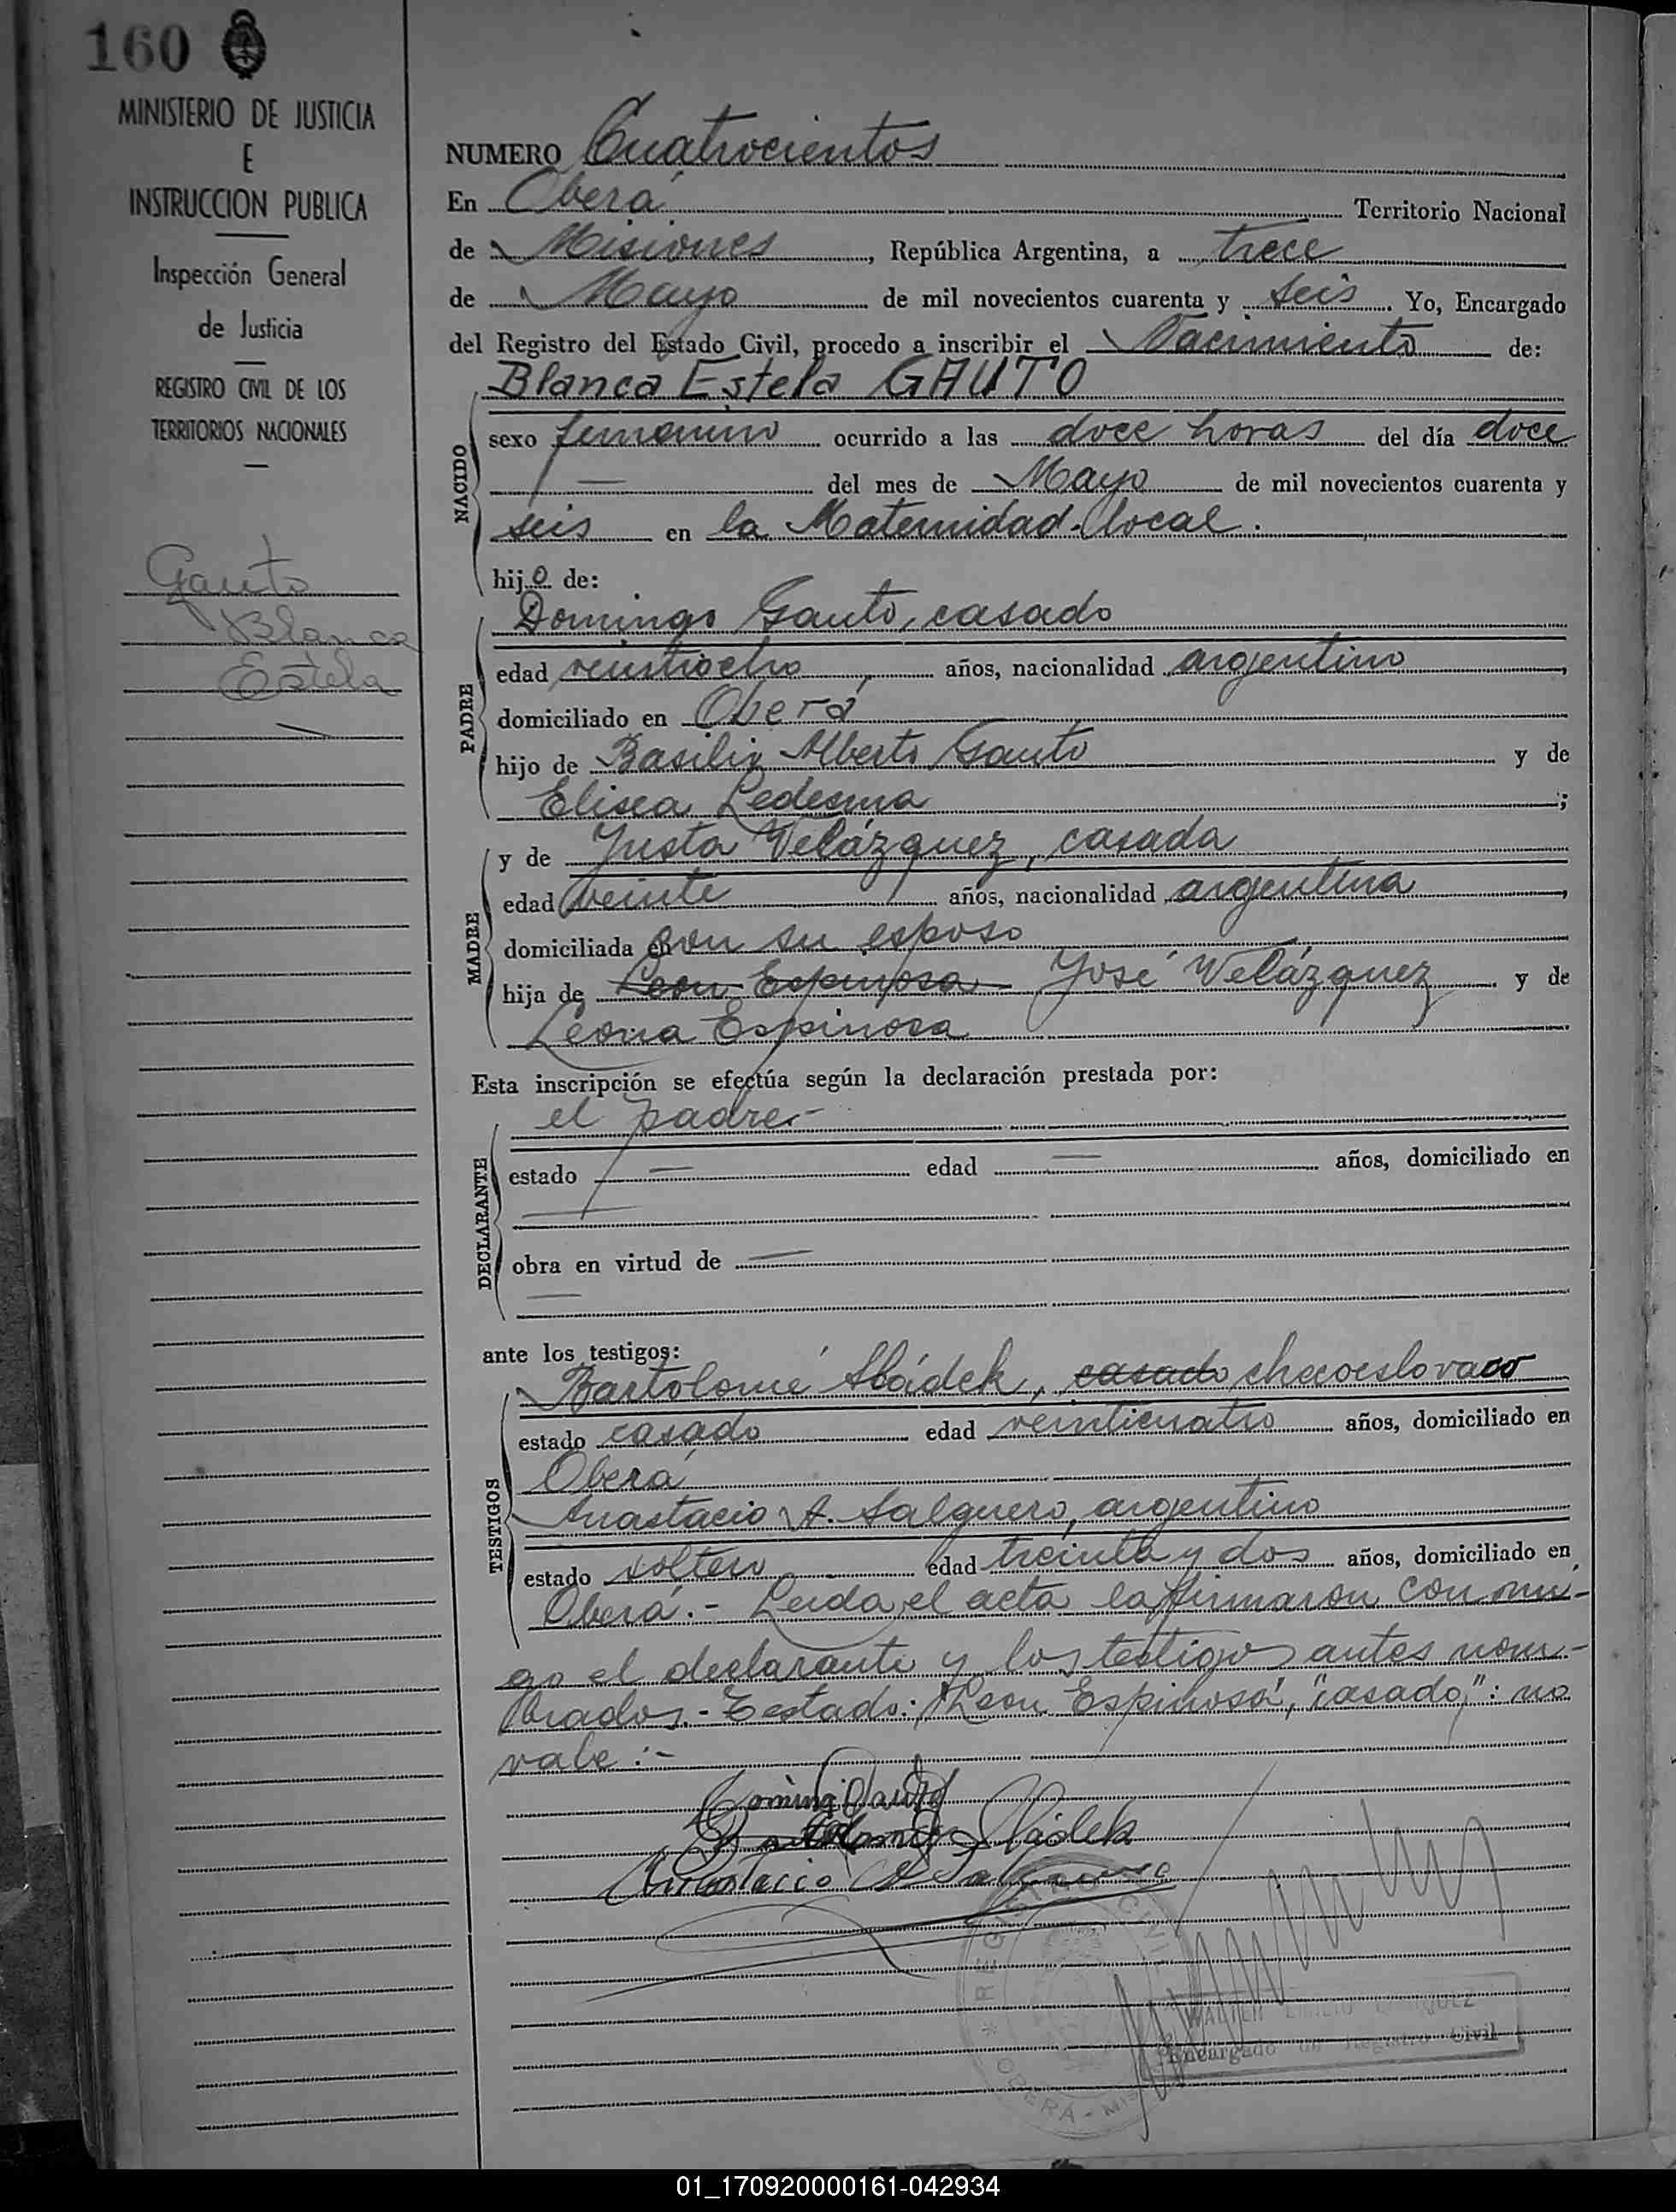 160
MINISTERIO DE JUSTICIA
E
INSTRUCCION PUBLICA
Inspección General
de Justicia
REGISTRO CIVIL DE LOS
TERRITORIOS NACIONALES
Gauto
Blanca
Estela
NUMERO Cuatrocientos
En Oberá Territorio Nacional
de Misiones, República Argentina, a trece
de Mayo de mil novecientos cuarenta y seis. Yo, Encargado
del Registro del Estado Civil, procedo a inscribir el Nacimiento de:
Blanca Estela GAUTO
NACIDO
sexo femenino ocurrido a las doce horas del día doce
— del mes de Mayo de mil novecientos cuarenta y
seis en la Maternidad local.
hijo de:
PADRE
Domingo Gauto, casado
edad veintiocho años, nacionalidad argentino,
domiciliado en Oberá
hijo de Basilio Alberto Gauto y de
Elisea Ledesma;
MADRE
y de Justa Velázquez, casada
edad veinte años, nacionalidad argentina,
domiciliada en con su esposo
hija de Leon Espinosa José Velázquez y de
Leona Espinosa
Esta inscripción se efectúa según la declaración prestada por:
DECLARANTE
el padre.-
estado — edad — años, domiciliado en
—
obra en virtud de —
—
ante los testigos:
TESTIGOS
Bartolomé Sládek, casado checoeslovaco
estado casado edad veinticuatro años, domiciliado en
Oberá
Anastacio A. Salguero, argentino
estado soltero edad treinta y dos años, domiciliado en
Oberá.- Leida el acta la firmaron conmi-
go el declarante y los testigos antes nom-
brados.- Testado: "Leon Espinosa", "casado": no
vale:-
Domingo Gauto
Bartolomé Sládek
Anastacio A Salguero
REGISTRO CIVIL
OBERA - MISIONES
WALTER EMILIO
Encargado de Registro Civil
01_170920000161-042934